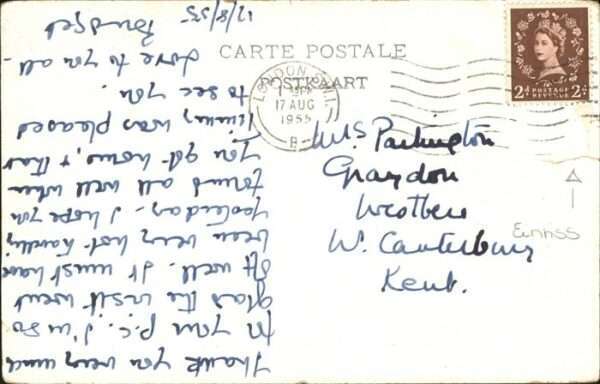 CARTE POSTALE
POSTKAART
LONDON
17 AUG
1955
B
2d POSTAGE REVENUE 2d
Mrs Parkington
Graydon
Westbere
Nr. Canterbury
Kent.
Einriss
Thank you very much
for your p.c. I'm so
glad the visit went
off well. It must have
been very hot travelling
yesterday. I hope you
found all well when
you got home, & that
Timmy was pleased
to see you.
Love to you all -
Bridget
17/8/55